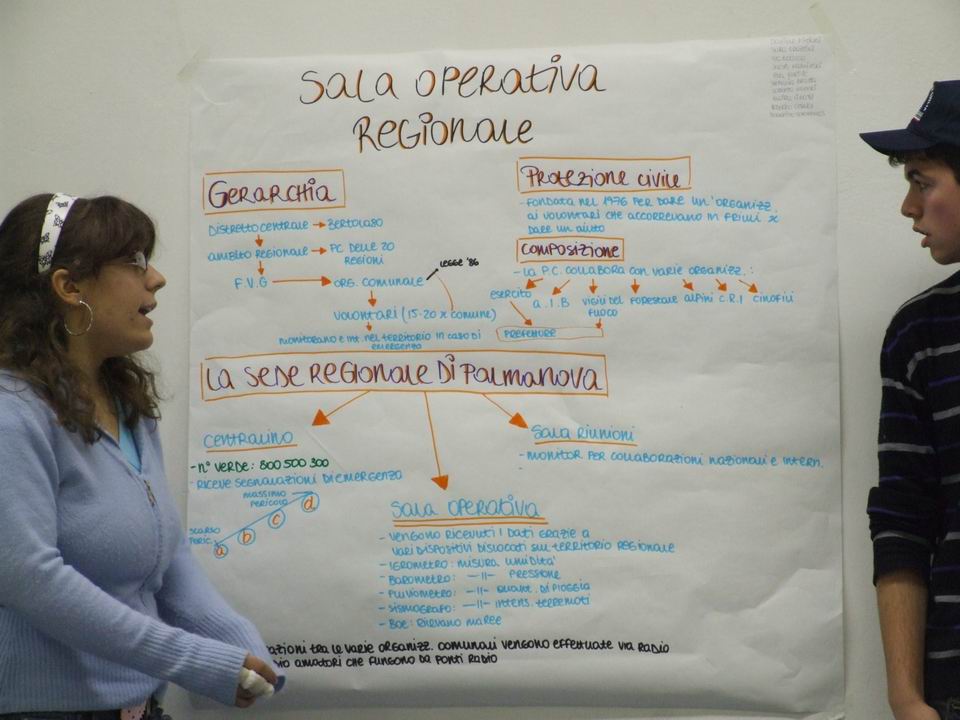 SALA OPERATIVA
REGIONALE
GERARCHIA
DISTRETTO CENTRALE → BERTOLASO
AMBITO REGIONALE → PC DELLE 20
REGIONI
F.V.G → ORG. COMUNALE
LEGGE '86
VOLONTARI (15-20 x COMUNE)
MONITORANO E INT. NEL TERRITORIO IN CASO DI
EMERGENZA
PROTEZIONE CIVILE
- FONDATA NEL 1976 PER DARE UN' ORGANIZZ.
AI VOLONTARI CHE ACCORREVANO IN FRIULI x
DARE UN AIUTO
COMPOSIZIONE
- LA P.C. COLLABORA CON VARIE ORGANIZZ. :
ESERCITO A.I.B VIGILI DEL FORESTALE ALPINI C.R.I CINOFILI
FUOCO
PREFETTORE
LA SEDE REGIONALE DI PALMANOVA
CENTRALINO
- N° VERDE: 800 500 300
- RICEVE SEGNALAZIONI DI EMERGENZA
MASSIMO
PERICOLO
SCARSO
PERIC.
a b c d
SALA RIUNIONI
- MONITOR PER COLLABORAZIONI NAZIONALI E INTERN.
-
SALA OPERATIVA
- VENGONO RICEVUTI I DATI GRAZIE A
VARI DISPOSITIVI DISLOCATI SUL TERRITORIO REGIONALE
- IGROMETRO: MISURA UMIDITA'
- BAROMETRO: —||— PRESSIONE
- PLUVIOMETRO: —||— QUANT. DI PIOGGIA
- SISMOGRAFO: —||— INTENS. TERREMOTI
- BOE: RILEVANO MAREE
AZIONI TRA LE VARIE ORGANIZZ. COMUNALI VENGONO EFFETTUATE VIA RADIO
DIO AMATORI CHE FUNGONO DA PONTI RADIO